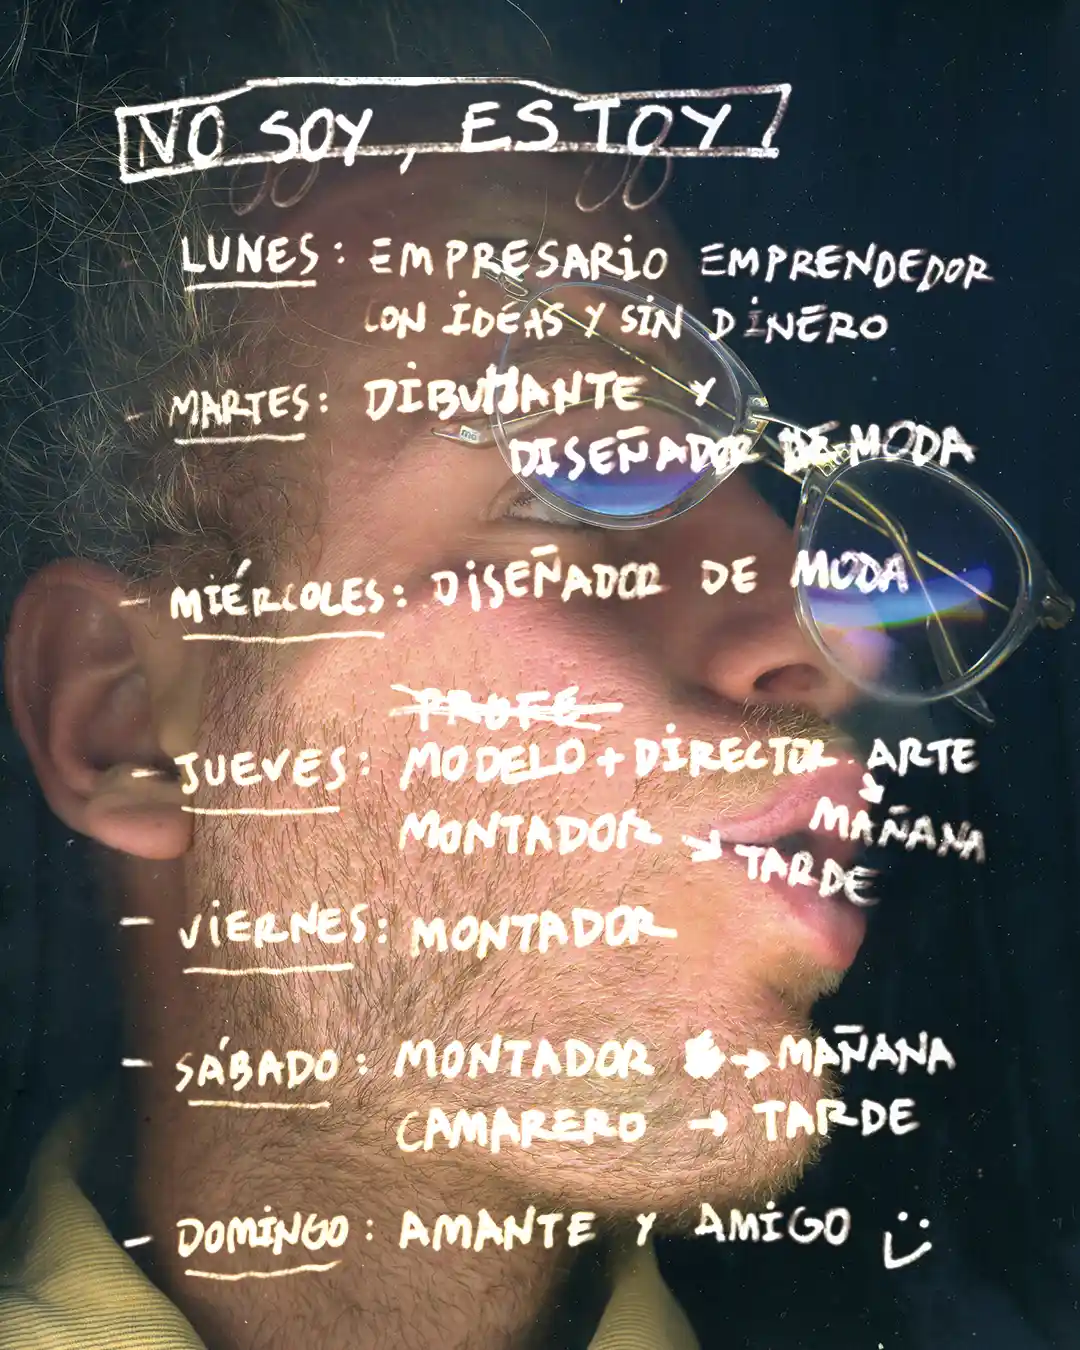 NO SOY, ESTOY
LUNES: EMPRESARIO EMPRENDEDOR
CON IDEAS Y SIN DINERO
- MARTES: DIBUJANTE Y
DISEÑADOR DE MODA
- MIÉRCOLES: DISEÑADOR DE MODA
PROFE
- JUEVES: MODELO + DIRECTOR ARTE
↘ MAÑANA
MONTADOR ↘ TARDE
- VIERNES: MONTADOR
- SÁBADO: MONTADOR → MAÑANA
CAMARERO → TARDE
- DOMINGO: AMANTE Y AMIGO